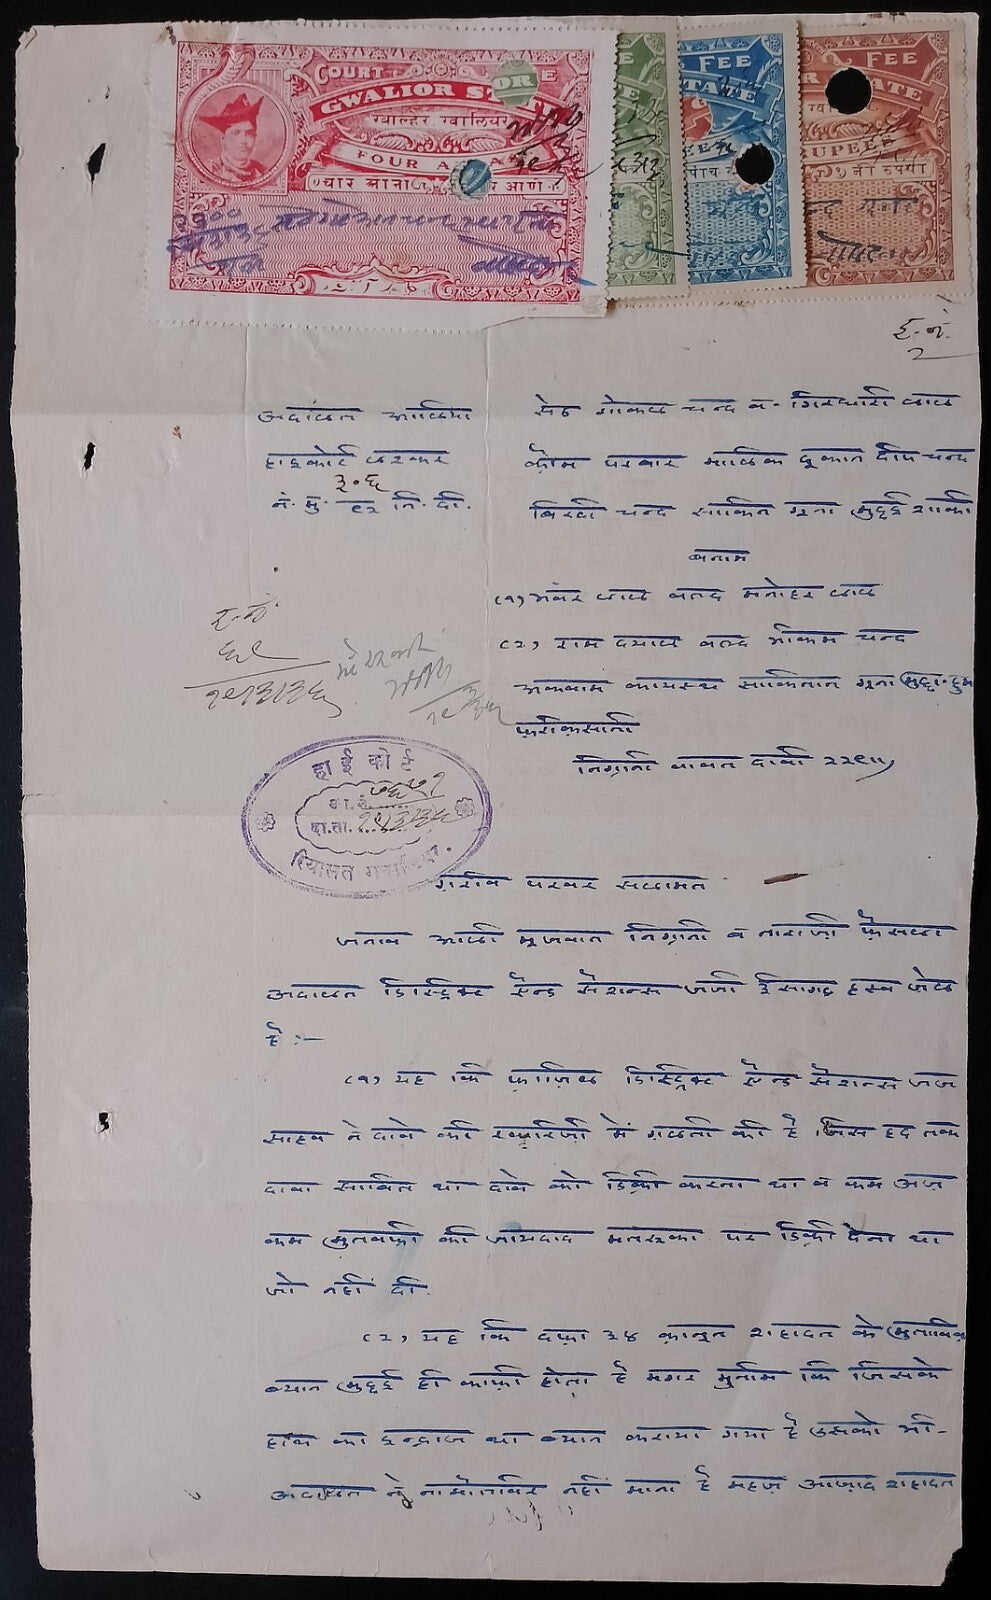 COURT FEE
GWALIOR STATE
ग्वाल्हेर ग्वालियर
FOUR ANNAS
चार आना
FEE
STATE
पांच
FEE
STATE
RUPEE
रुपया
इ. नं.
२
अदालत आलिया
हाइकोर्ट लश्कर
३०६
नं. मु. ९२ नि. दी.
सेठ गोकल चन्द व. गिरधारी लाल
कौम परवार मालिक दूकान दीप चन्द
बिरदी चन्द साकिन गूना मुद्दई शाकी
बनाम
(१) भंवर लाल वल्द मनोहर लाल
(२) राम दयाल वल्द भीकम चन्द
अकवाम कायस्थ साकिनान गूना मुद्दा. हुम
फ़रीकसानी
निग्रानी बाबत दावी २२९॥)
हाई कोर्ट
दा. ता. २९।३।३५
रियासत गवालियर.
ग़रीब परवर सलामत
जनाब आली मूजबात निग्रानी व नाराज़ी फ़ैसला
अदालत डिस्ट्रिक्ट ऐन्ड सैशन्स जजी ईसागढ़ हस्ब जेल
है :—
(१) यह कि फ़ाज़िल डिस्ट्रिक्ट ऐन्ड सैशन्स जज
साहब ने दावे की ख़ारिजी में ग़लती की है जिस हद तक
दावा साबित था दावे को डिक्री करना था व कम अज़
कम मुतवफ़ी की जायदाद मतरूका पर डिक्री देना था
जो नहीं दी.
(२) यह कि दफ़ा ३४ क़ानून शहादत के मुताबिक़
ब्यान मुद्दई ही काफ़ी होता है मगर मुनीम कि जिसके
हाथ का इन्द्राज था ब्यान कराया गया है उसको भी-
अदालत ने नामोतबिर नहीं माना है महज़ आज़ाद शहादत